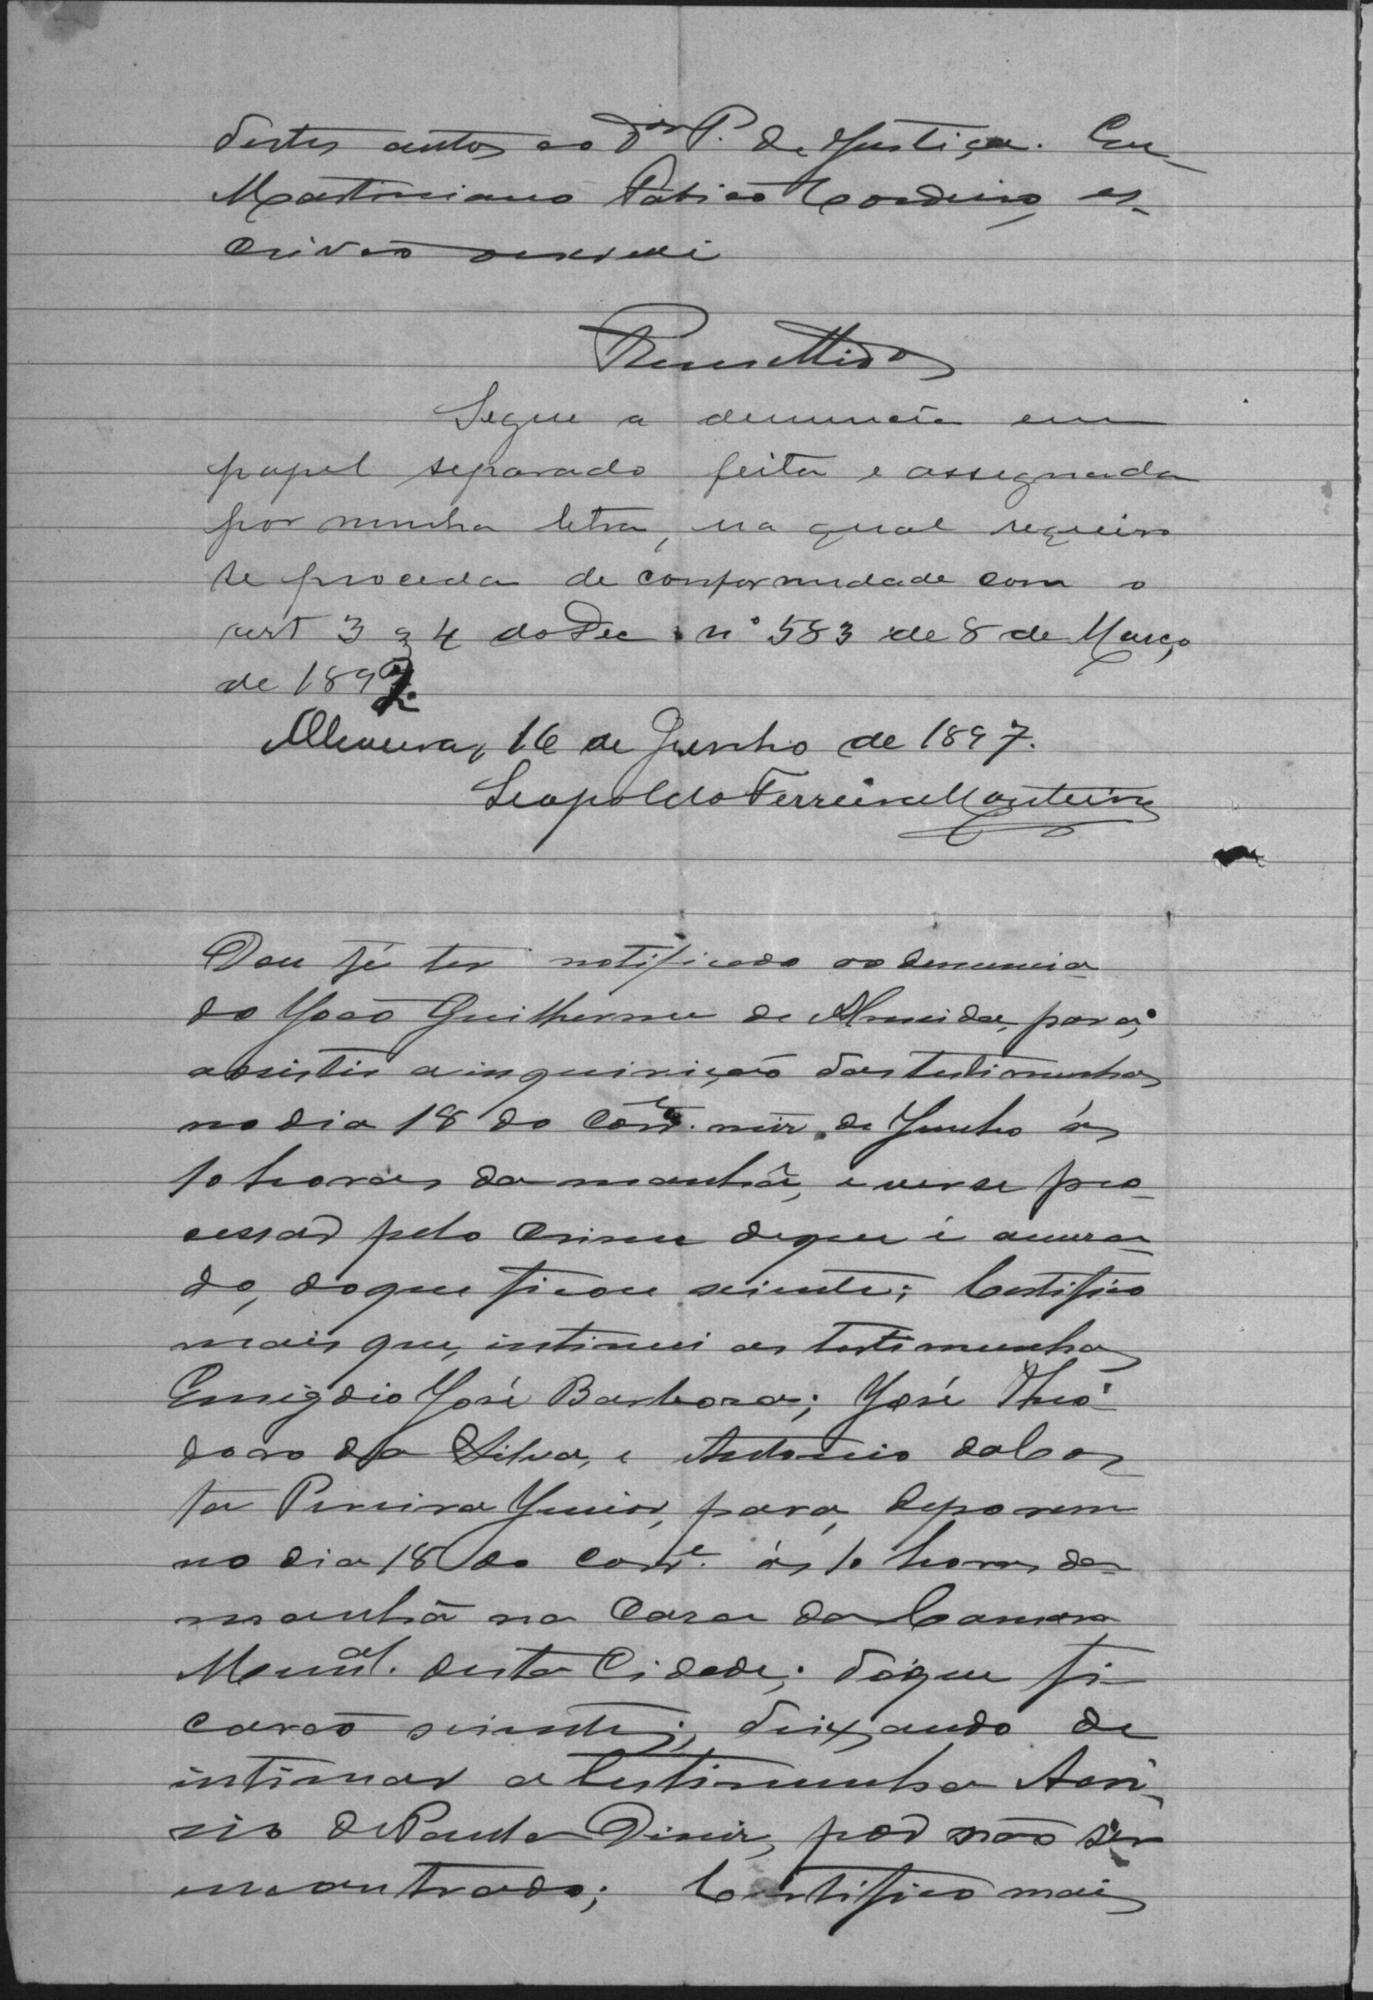 destes autos ao Dor P. de Justiça. Eu
Martiniano Cordeiro, es-
crivão escrevi
Remettido
Segue a denuncia em
papel separado feita e assegnada
por minha letra, na qual requeiro
se proceda de conformidade com o
art 3 e 4 do Dec nº 583 de 8 de Março
de 1897.
16 de Junho de 1897.
Leopoldo Ferreira Monteiro
Dou fé ter notificado ao denuncia-
do João Guilherme de Almeida, para,
assistir a inquirição das testimunhas
no dia 18 do corre. mez, de Junho ás
10 horas da manhã, e verse pro-
cessar pelo crime deque é accusa-
do, doque ficou sciente; Certifico
mais que, intimei as testimunhas
Emigdio José Barbosa; José Theo-
doro da Silva, e Antonio da Cos-
ta Pereira Junior, para, deporem
no dia 18 do corre. ás 10 horas da
manhã na Casa da Camara
Munal. desta Cidade; doque fi-
carão scientes; deixando de
intimar a testimunha
de Paula Diniz, por não ser
encontrado; Certifico mais